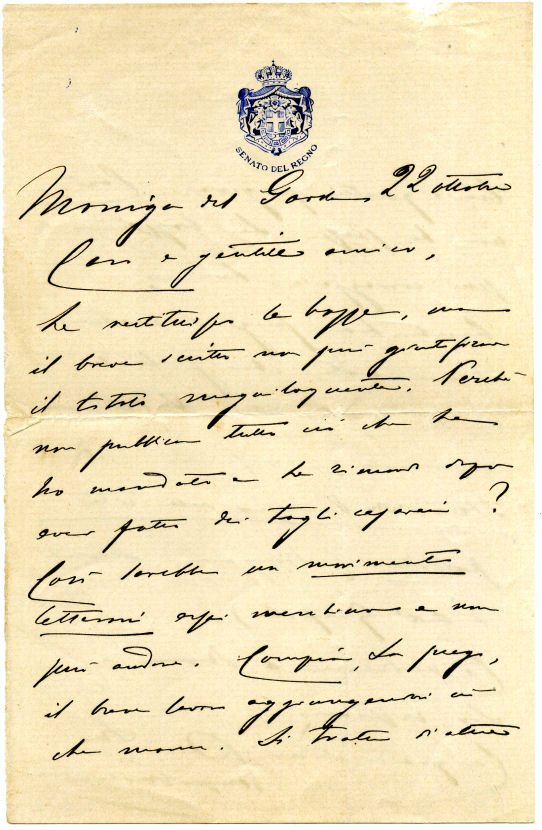 SENATO DEL REGNO
Moniga del Garda 22 ottobre
Caro e gentile amico,
Le restituisco le bozze, ma
il breve scritto non può giustificare
il titolo magniloquente. Perché
non pubblica tutto ciò che Le
ho mandato e Le rimando dopo
aver fatto dei tagli cesarei?
Così sarebbe un movimento
letterario assai meschino e non
può andare. Compia, La prego,
il breve lavoro aggiungendovi ciò
che manca. Si tratta d'altra